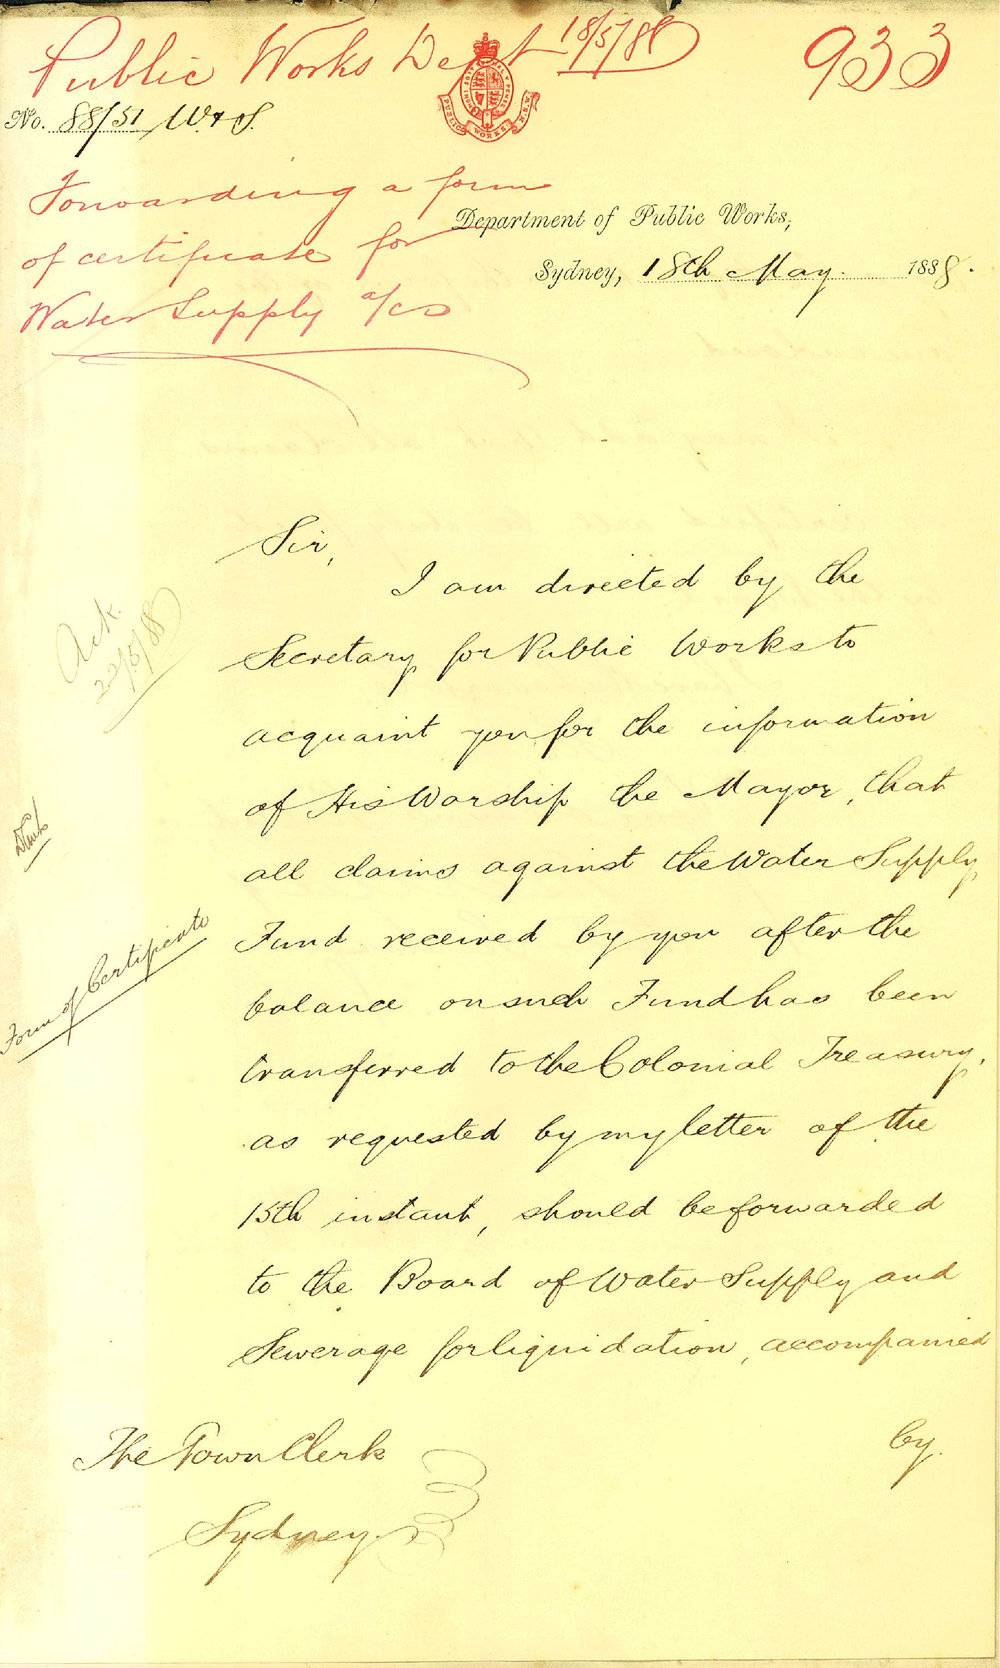 Public Works Dept 18/5/88
933
No. 88/51 W&S.
Forwarding a form
of certificate for
Water Supply a/cs
PUBLIC WORKS N.S.W.
Department of Public Works,
Sydney, 18th May. 1888.
Sir,
I am directed by the
Secretary for Public Works to
acquaint you for the information
of His Worship the Mayor, that
all claims against the Water Supply
Fund received by you after the
balance on such Fund has been
transferred to the Colonial Treasury,
as requested by my letter of the
15th instant, should be forwarded
to the Board of Water Supply and
Sewerage for liquidation, accompanied
by.
The Town Clerk
Sydney.
Ack.
22/5/88
Form of Certificate